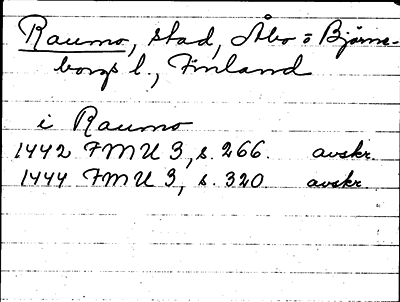 Raumo, stad, Åbo o Björne-
borgs l., Finland
i Raumo
1442 FMU 3, s. 266. avskr.
1444 FMU 3, s. 320 avskr.